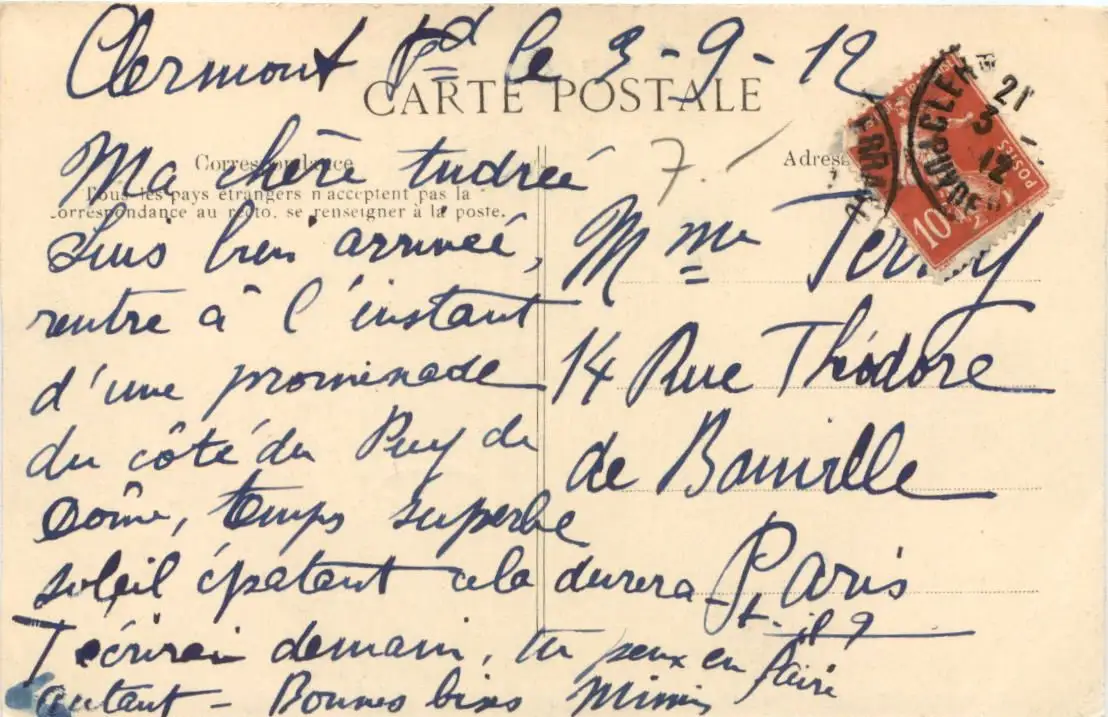 Clermont Fd le 3-9-12
CARTE POSTALE
Correspondance
Tous les pays étrangers n'acceptent pas la
correspondance au recto, se renseigner à la poste.
Ma chère Andrée
Suis bien arrivée,
rentre à l'instant
d'une promenade
du côté du Puy de
Dôme, temps superbe
soleil épatant cela durera-
t-il?
T'écrirai demain, tu peux en faire
autant - Bonnes bises Mimi
7.
Adresse
Mme
14 Rue Théodore
de Banville
Paris
21
3
12
POSTES
10